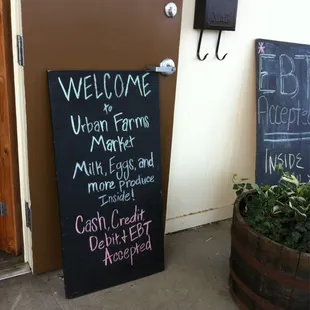 WELCOME
to
Urban Farms
Market
Milk, Eggs, and
more produce
Inside!
Cash, Credit
Debit & EBT
Accepted
EBT
Accepted
INSIDE